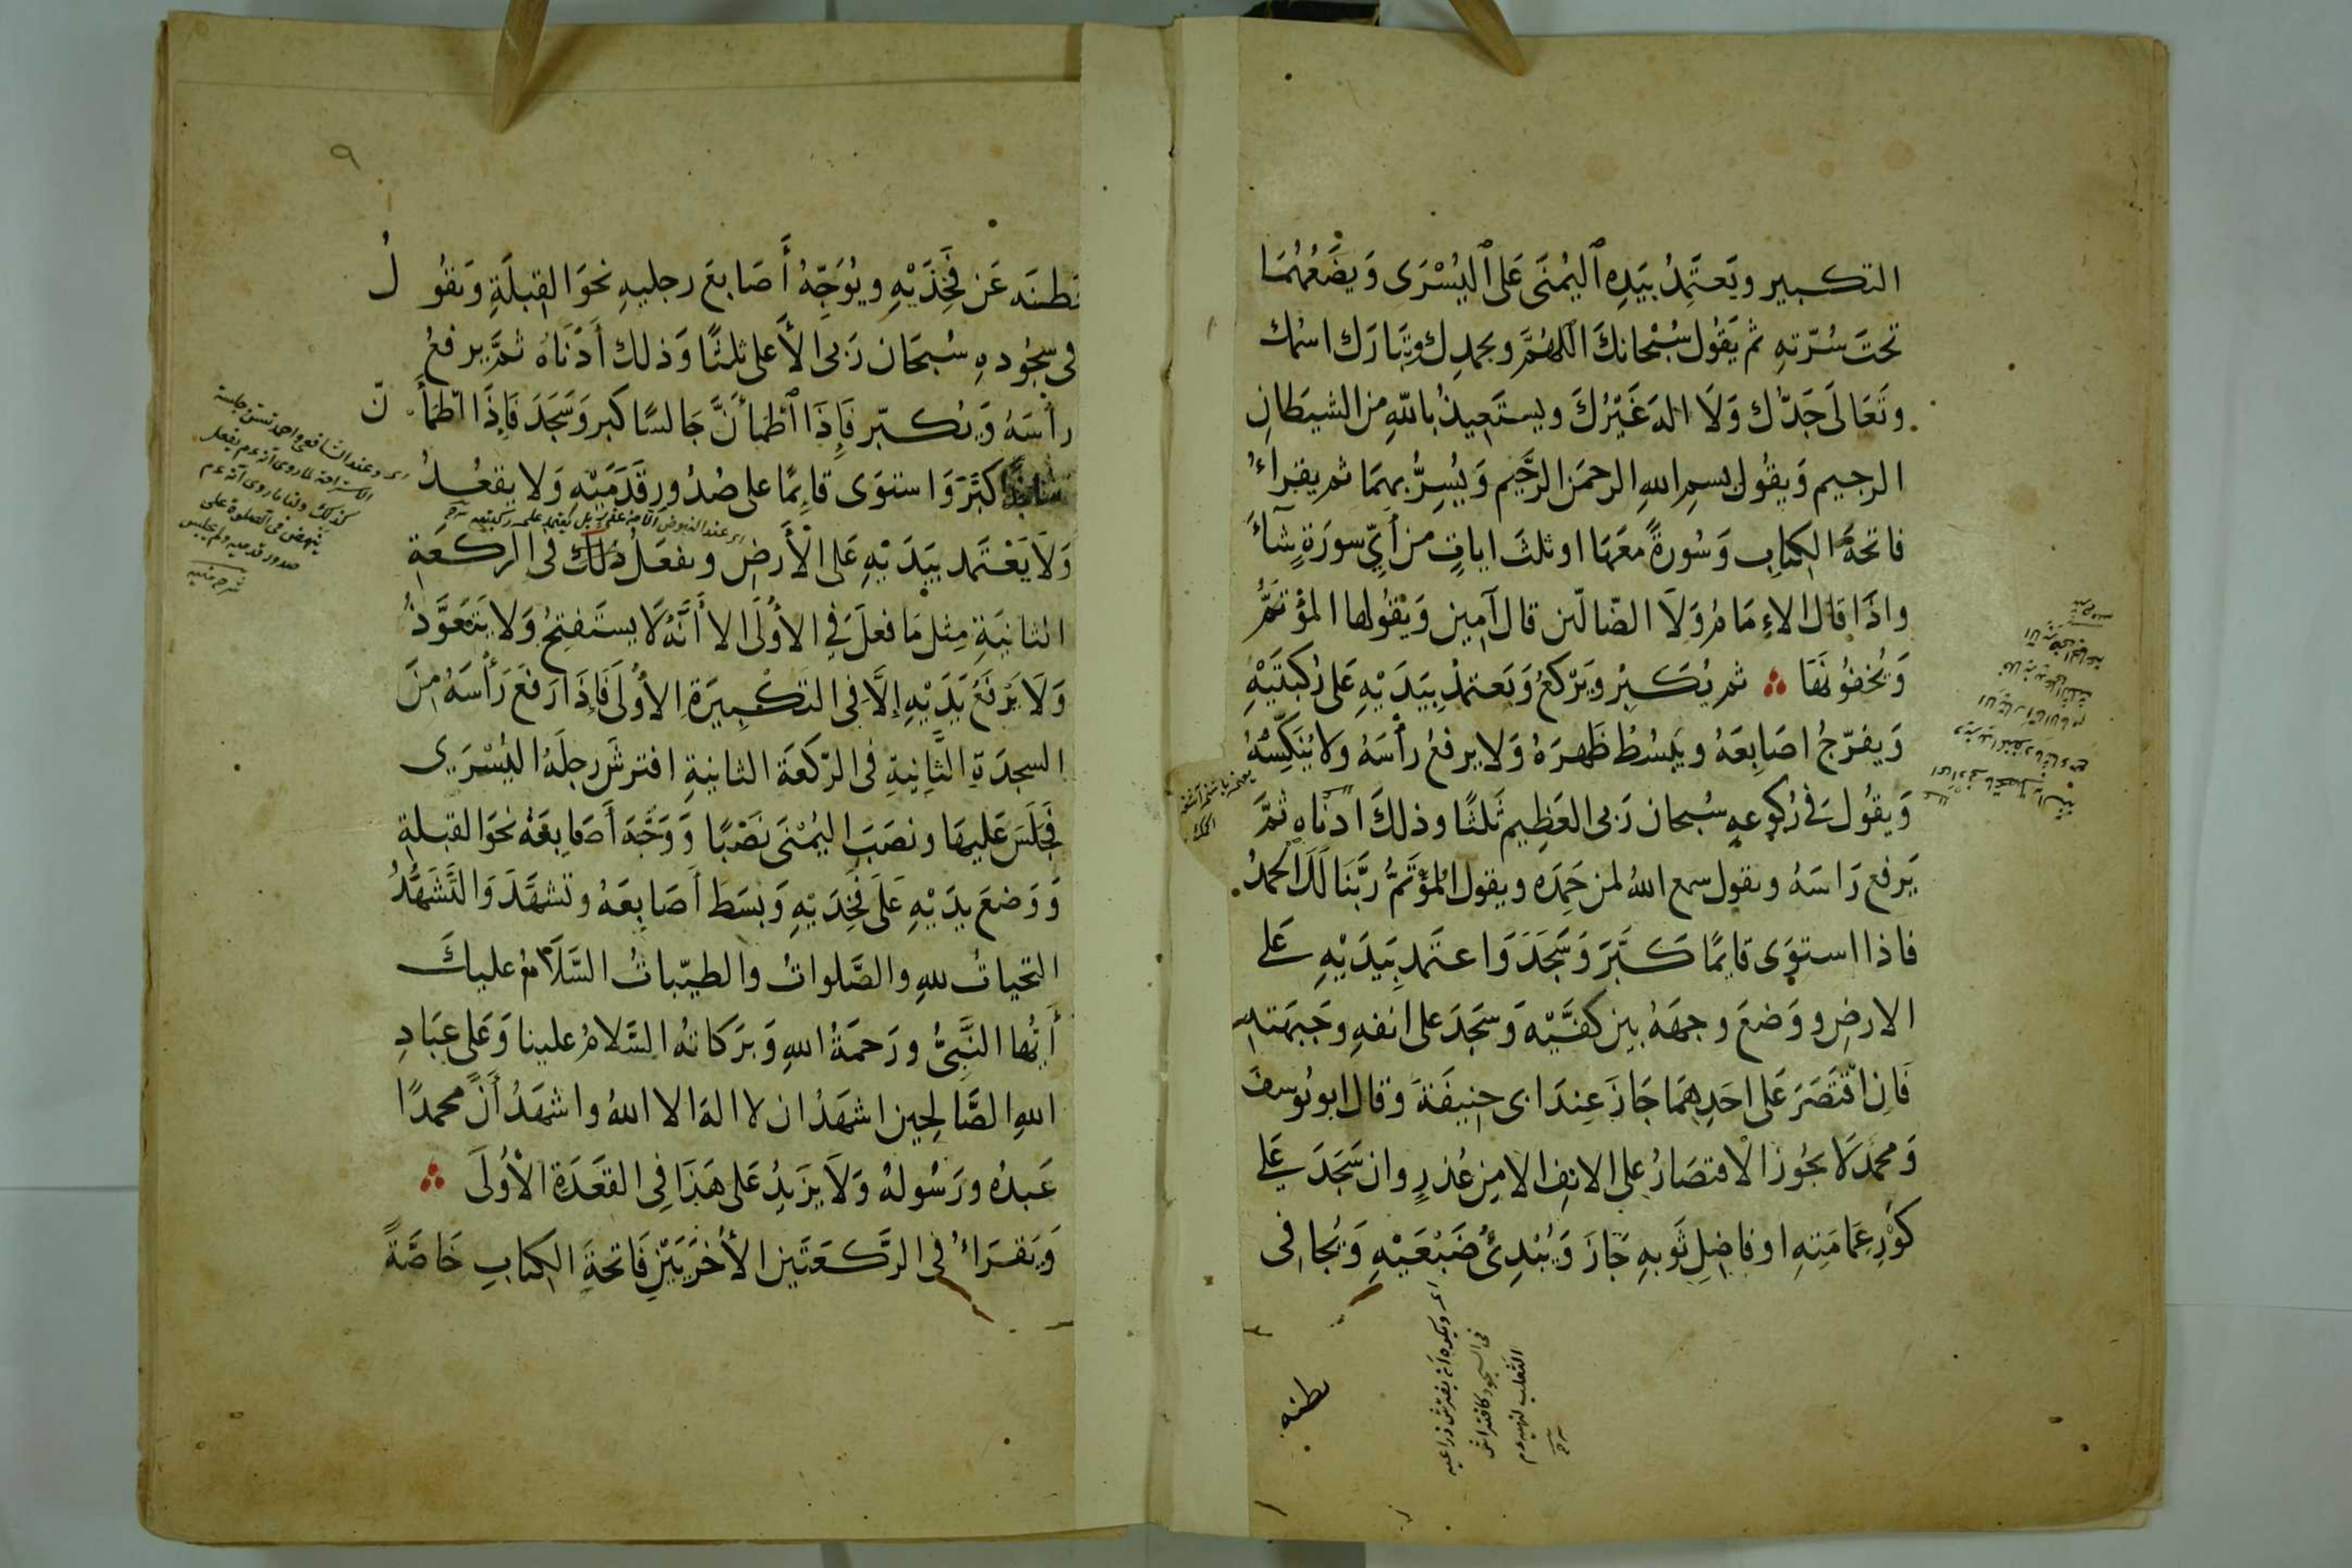 التكبير ويَعتَمِدُ بيَدِه ٱليُمنَى عَلى ٱليُسْرَى وَيضَعُهُمَا
تحتَ سُرّتهِ ثم يَقُول سُبْحانكَ اللهُمَّ وبحمدِك وتبَارَك اسْمك
وتَعَالى جَدّك وَلَا اله غَيْرُكَ ويستَعِيذُ بالله من الشيطَانِ
الرجيم وَيقُول بسمِ اللهِ الرحمَن الرحَّيم وَيُسِرُّ بهِمَا ثم يقراءُ
فاتحةَ الكتابِ وَسُورةً معَهَا او ثلثَ اياتٍ من أيّ سورَةٍ شآءَ
واذَا قال الاِمَامُ وَلَا الضّالّين قال آمين وَيْقُولها المؤتمُّ
وَيُخفُونَهَا ثم يُكَبِرُ ويَرْكعُ وَيَعتمدُ بيَدَيْهِ عَلى رُكبتَيْهِ
وَيفرّجُ اصَابِعَهُ ويَبسُطُ ظَهرَهُ وَلا يرفعُ رأسَهُ ولا يُنَكِّسُهُ
وَيقُولَ في رُكوعهِ سُبحان رَبى العَظِيم ثَلثًا وذلكَ ادنَاهِ ثمَّ
يَرفع رَاسَهُ ويقول سمع اللهُ لمن حَمِدَه ويقول المُؤتَمُّ رَبَّنَا لَكَ الحمدُ
فاذا استوَى قايمًا كَبَّرَ وَسَجَدَ وَاعتَمد بِيَدَيْهِ عَلى
الارضِ ووَضعَ وجهَهُ بين كفيَّيْه وَسَجَدَ على انفهِ وجَبهَتهِ
فَانِ اقْتَصَرَ عَلى احَدِهمَا جَازَ عِندَ ابى حنيفَةَ وَقال ابويُوسفَ
وَمحمَّد لَا يجُوزُ الْاقتصَارُ على الانفِ الا مِن عُذرٍ وان سَجَدَ عَلى
كوْرِ عِمَامَتِهِ او فاضِلِ ثَوبهِ جَازَ وَيُبْدِئُ ضَبْعَيْهِ وَيُجافِى
اى ويكره ان يفترش ذراعيه
فى السجود كافتراش
الثعلب لنهيه عم
بطنه
٩
بَطنَه عَن فَخِذَيْهِ ويُوَجِّهُ أَصَابِعَ رجليهِ نحوَ القِبلَةِ وَيقُولُ
فى سجُودهِ سُبحَان رَبى الأَعلى ثلثًا وَذلك أَدْنَاهُ ثمَّ يرفعُ
رأسَهُ وَيكبّر فَاِذَا ٱطمأنَّ جَالسًا كبر وَسَجَدَ فَاِذَا اطمَأَنّ
سَاجدًا كبَّرَ وَاستوَى قايِمًا على صُدُورِ قَدَمَيْهِ وَلا يقعُدُ
وَلَا يَعْتَمد بيَدَيْهِ عَلى الْأَرضِ ويفعَلُ ذلكَ فى الركعَةِ
الثانيَةِ مِثل مَا فعلَ فِي الأولَى الا أَنَّهُ لَا يستَفتِحُ وَلا يَتعَوَّذُ
وَلَا يَرْفَعُ يَدَيْهِ إلَّا فِى التكْبِيرَةِ الأولى فَاِذَا رَفعَ رَأسَهُ مِنَ
السجدَةِ الثَّانِيةِ فى الرّكعَة الثانيةِ افترشَ رجلَهُ اليُسْرَى
فجَلَسَ عَليهَا ونصَبَ اليُمْنَى نَصْبًا وَوَجَّهَ أَصَابِعَهُ نحوَ القبلةِ
وَوَضعَ يدَيْهِ عَلَى فَخِذَيْهِ وَبسَطَ أَصَابِعَهُ وتشهَّدَ وَالتَّشَهُّدُ
التحياتُ للهِ والصَّلواتُ والطيّباتُ السَّلَامُ عليكَ
أَيُّها النَّبيُّ ورَحمَةُ اللهِ وَبَرَكاتهُ السَّلامُ علينا وَعَلى عِبَادِ
اللهِ الصَّالحِين اشهَدُ ان لا الهَ الا اللهُ واشهَدُ أَنَّ محمدًا
عَبدُه ورَسُولهُ وَلَا يزَيدُ عَلى هَذَا فِى القعَدَة الْأولَى
وَيَقرَاءُ فى الرَّكعَتَين الأخرَيَيْنِ فَاتحَةَ الكتابِ خَاصَّةً
اى عند النهوض
بل يعتمد على ركبتيه
وعند الشافعى
لما روى انه عم يفعل
كذلك ولنا ما روى انه عم
ينهض فى الصلوة على
صدور قدميه ولم يجلس